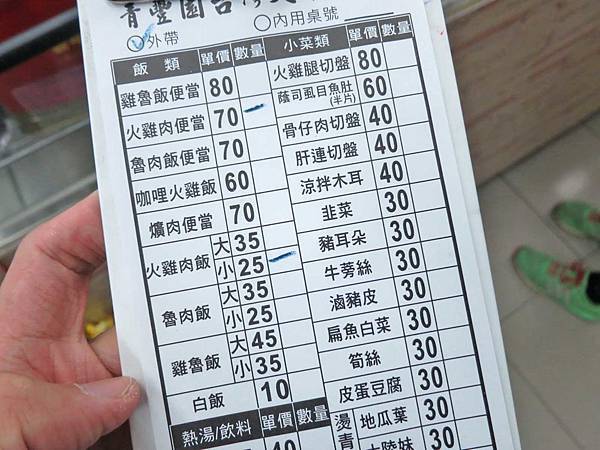 青豐園台灣
外帶
內用桌號
飯類 單價 數量
雞魯飯便當 80
火雞肉便當 70
魯肉飯便當 70
咖哩火雞飯 60
爌肉便當 70
火雞肉飯 大 35
小 25
魯肉飯 大 35
小 25
雞魯飯 大 45
小 35
白飯 10
熱湯/飲料 單價 數量
40
小菜類 單價 數量
火雞腿切盤 80
蔭司虱目魚肚(半片) 60
骨仔肉切盤 40
肝連切盤 40
涼拌木耳 40
韭菜 30
豬耳朵 30
牛蒡絲 30
滷豬皮 30
扁魚白菜 30
筍絲 30
皮蛋豆腐 30
燙青 地瓜葉 30
大陸妹 30